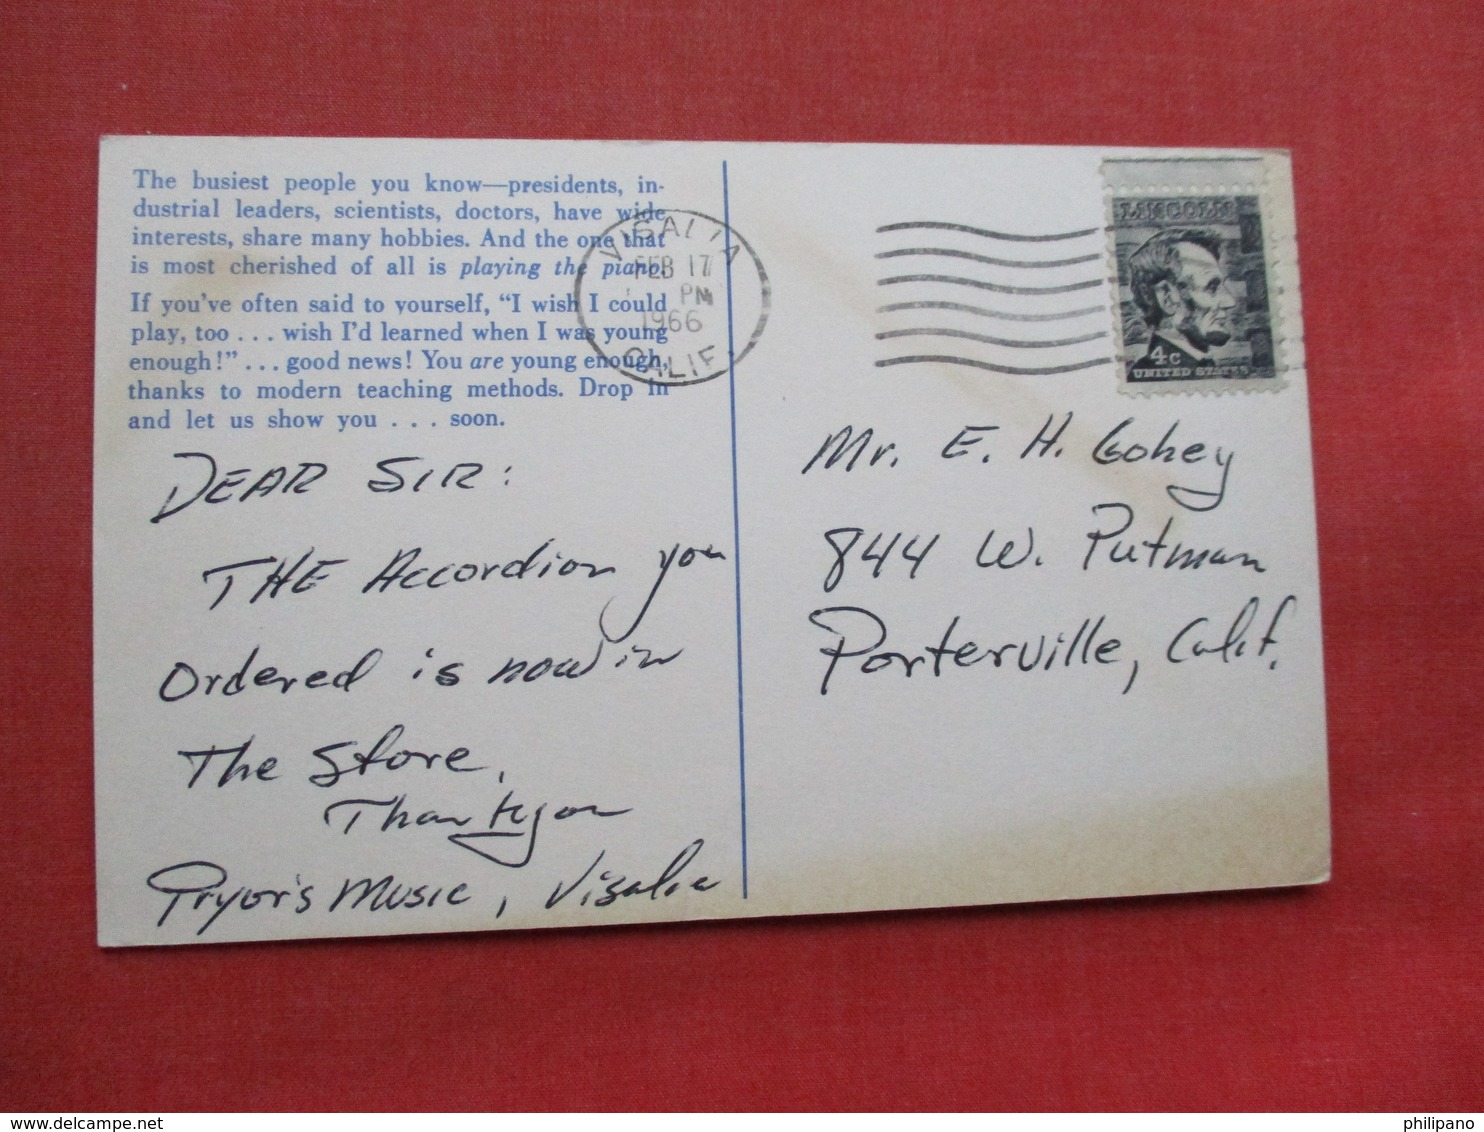 The busiest people you know—presidents, in-
dustrial leaders, scientists, doctors, have wide
interests, share many hobbies. And the one that
is most cherished of all is playing the piano.
If you've often said to yourself, "I wish I could
play, too . . . wish I'd learned when I was young
enough!" . . . good news! You are young enough,
thanks to modern teaching methods. Drop in
and let us show you . . . soon.
DEAR SIR:
THE Accordion you
Ordered is now in
The Store.
Thank you
Pryor's Music, Visalia
VISALIA
FEB 17
PM
1966
CALIF.
LINCOLN
4c
UNITED STATES
Mr. E. H. Gohey
844 W. Putman
Porterville, Calif.
www.delcampe.net
philipano